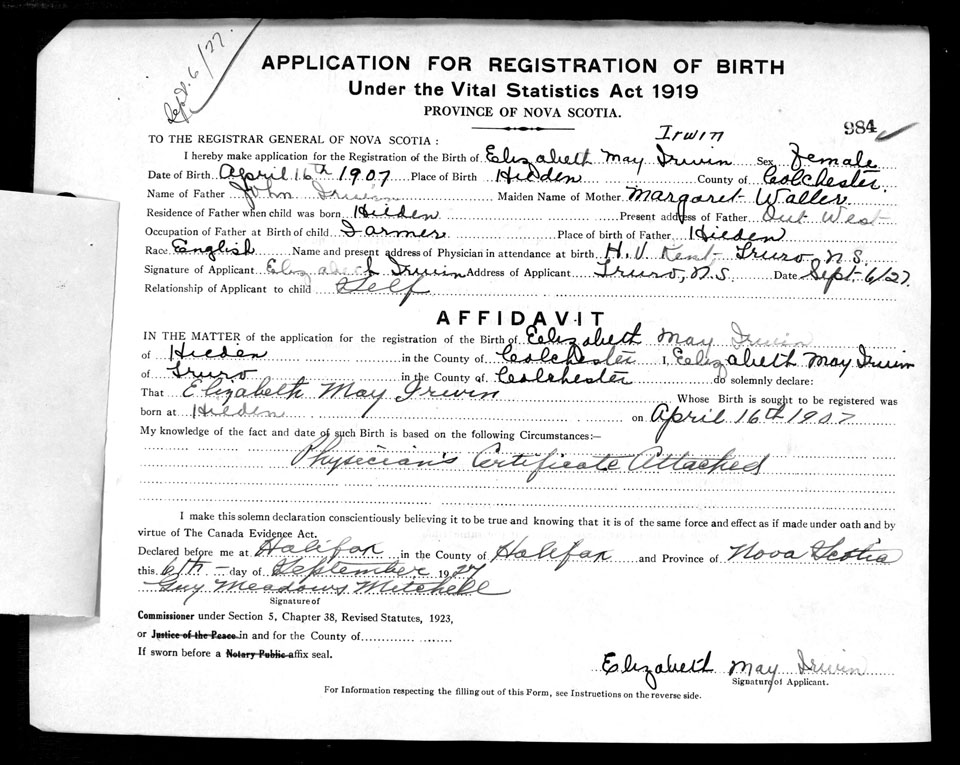 Sept. 6/27.
APPLICATION FOR REGISTRATION OF BIRTH
Under the Vital Statistics Act 1919
PROVINCE OF NOVA SCOTIA.
984
Irwin
TO THE REGISTRAR GENERAL OF NOVA SCOTIA :
I hereby make application for the Registration of the Birth of Elizabeth May Irwin Sex Female
Date of Birth April 16th 1907 Place of Birth Hilden County of Colchester.
Name of Father John Irwin Maiden Name of Mother Margaret Waller
Residence of Father when child was born Hilden Present address of Father Out West
Occupation of Father at Birth of child Farmer Place of birth of Father Hilden
Race English Name and present address of Physician in attendance at birth H. V. Kent - Truro, N.S.
Signature of Applicant Elizabeth Irwin Address of Applicant Truro, N.S. Date Sept. 6/27.
Relationship of Applicant to child Self
AFFIDAVIT
IN THE MATTER of the application for the registration of the Birth of Elizabeth May Irwin
of Hilden in the County of Colchester I, Elizabeth May Irwin
of Truro in the County of Colchester do solemnly declare:
That Elizabeth May Irwin Whose Birth is sought to be registered was
born at Hilden on April 16th 1907
My knowledge of the fact and date of such Birth is based on the following Circumstances:—
Physician's Certificate Attached
I make this solemn declaration conscientiously believing it to be true and knowing that it is of the same force and effect as if made under oath and by
virtue of The Canada Evidence Act.
Declared before me at Halifax in the County of Halifax and Province of Nova Scotia
this 6th - day of September 1927
Guy Meadows Mitchell
Signature of
Commissioner under Section 5, Chapter 38, Revised Statutes, 1923,
or Justice of the Peace in and for the County of
If sworn before a Notary Public affix seal.
Elizabeth May Irwin
Signature of Applicant.
For Information respecting the filling out of this Form, see Instructions on the reverse side.